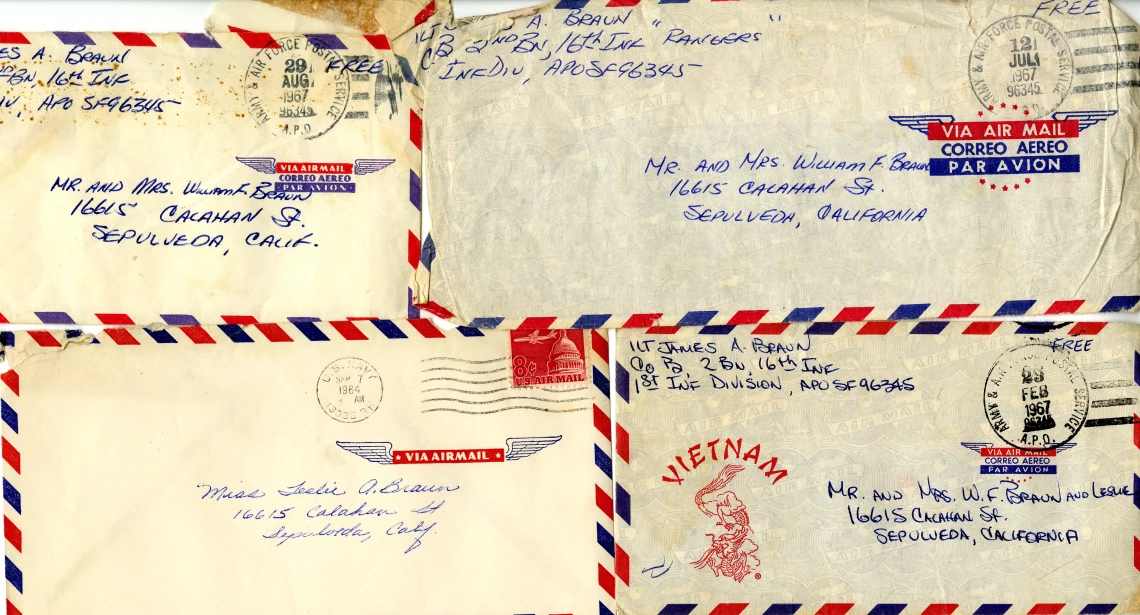 ES A. BRAUN
BN, 16th INF
DIV, APO SF96345
ARMY & AIR FORCE POSTAL SERVICE
29
AUG
1967
96345
A.P.O
FREE
VIA AIRMAIL
CORREO AEREO
PAR AVION
MR. AND MRS. WILLIAM F. BRAUN
16615 CALAHAN St.
SEPULVEDA, CALIF.
1LT A. BRAUN " "
CO B 2ND BN, 16th INF RANGERS
INF DIV, APO SF 96345
FREE
ARMY & AIR FORCE POSTAL SERVICE
12
JUL
1967
96345
VIA AIR MAIL
CORREO AEREO
PAR AVION
MR. AND MRS. WILLIAM F. BRAUN
16615 CALAHAN St.
SEPULVEDA, CALIFORNIA
U.S. NAVY
SEP 7
1964
AM
8¢
U.S. AIR MAIL
VIA AIRMAIL
Miss Leslie A. Braun
16615 Calahan St
Sepulveda, Calif.
1LT JAMES A. BRAUN
Co B, 2 BN, 16th INF
1ST INF DIVISION, APO SF 96345
FREE
ARMY & AIR FORCE POSTAL SERVICE
FEB
1967
96345
A.P.O.
VIETNAM
®
VIA AIR MAIL
CORREO AEREO
PAR AVION
MR. AND MRS. W. F. BRAUN AND LESLIE
16615 CALAHAN St.
SEPULVEDA, CALIFORNIA